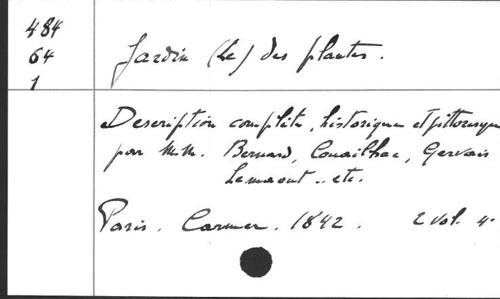 484
64
1
Jardin (Le) des plantes.
Description complète, historique et pittoresque
par M.M. Bernard, Couailhac, Gervais
Lemaout.. etc.
Paris. Curmer. 1842. 2 vol. 4°